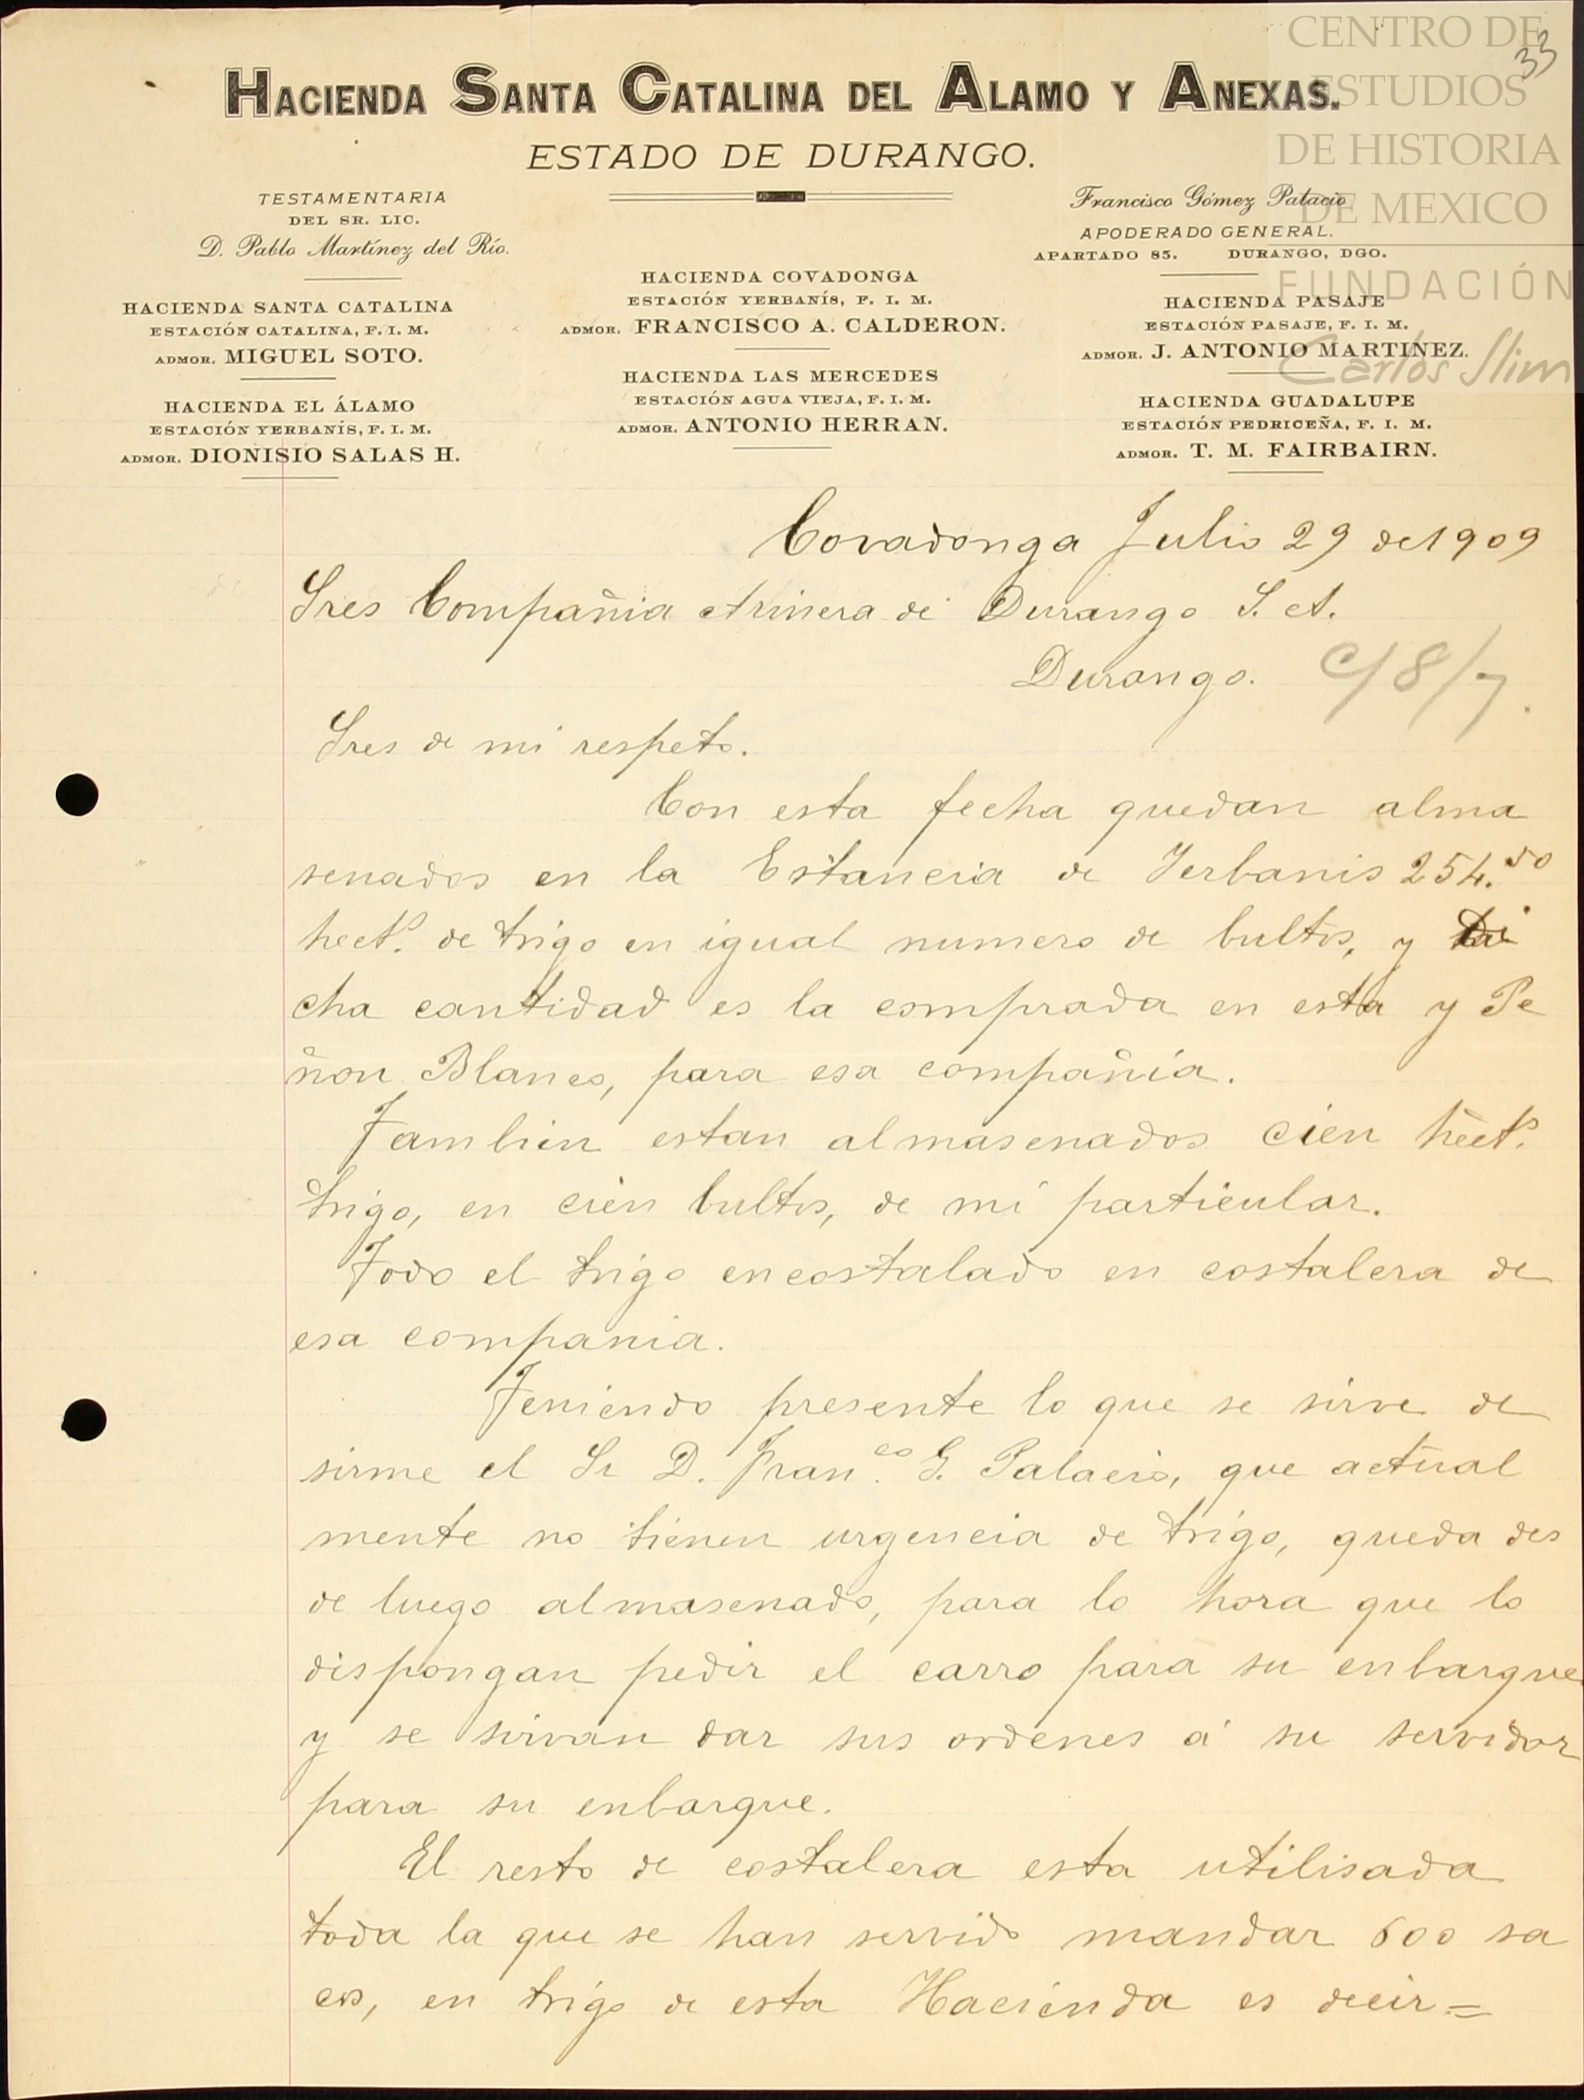 CENTRO DE
ESTUDIOS
DE HISTORIA
DE MEXICO
FUNDACIÓN
Carlos Slim
33
HACIENDA SANTA CATALINA DEL ALAMO Y ANEXAS.
ESTADO DE DURANGO.
TESTAMENTARIA
DEL SR. LIC.
D. Pablo Martínez del Río.
HACIENDA SANTA CATALINA
ESTACIÓN CATALINA, F. I. M.
ADMOR. MIGUEL SOTO.
HACIENDA EL ÁLAMO
ESTACIÓN YERBANÍS, F. I. M.
ADMOR. DIONISIO SALAS H.
HACIENDA COVADONGA
ESTACIÓN YERBANÍS, F. I. M.
ADMOR. FRANCISCO A. CALDERON.
HACIENDA LAS MERCEDES
ESTACIÓN AGUA VIEJA, F. I. M.
ADMOR. ANTONIO HERRAN.
Francisco Gómez Palacio
APODERADO GENERAL.
APARTADO 85. DURANGO, DGO.
HACIENDA PASAJE
ESTACIÓN PASAJE, F. I. M.
ADMOR. J. ANTONIO MARTINEZ.
HACIENDA GUADALUPE
ESTACIÓN PEDRICEÑA, F. I. M.
ADMOR. T. M. FAIRBAIRN.
Covadonga Julio 29 de 1909
Sres Compañia Arinera de Durango S. A.
Durango. C/8/7.
Sres de mi respeto.
Con esta fecha quedan alma
senados en la Estancia de Yerbanis 254.50
hect.s de trigo en igual numero de bultos, y Di
cha cantidad es la comprada en esta y Pe
ñon Blanco, para esa compañia.
Tambien estan almasenados cien hect.s
trigo, en cien bultos, de mi particular.
Todo el trigo encostalado en costalera de
esa compania.
Teniendo presente lo que se sirve de
sirme el Sr D. Fran.co G. Palacio, que actual
mente no tienen urgencia de trigo, queda des
de luego almasenado, para lo hora que lo
dispongan pedir el carro para su enbarque
y se sirvan dar sus ordenes á su servidor
para su enbarque.
El resto de costalera esta utilisada
toda la que se han servido mandar 600 sa
cos, en trigo de esta Hacienda es decir=